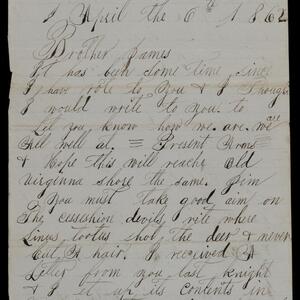 April the 6th 1862
Brother James
It has been some time since
I have rote to you & I thought
I would write to you to
Let you know how we are. we are
Well at Present
& hope this will reach old
Virginna shore the same. Jim
You must take good aim on
The cesseshion devils, rite where
shot the deer & never
A hair. I received A
Letter from you last knight
& I its contents in